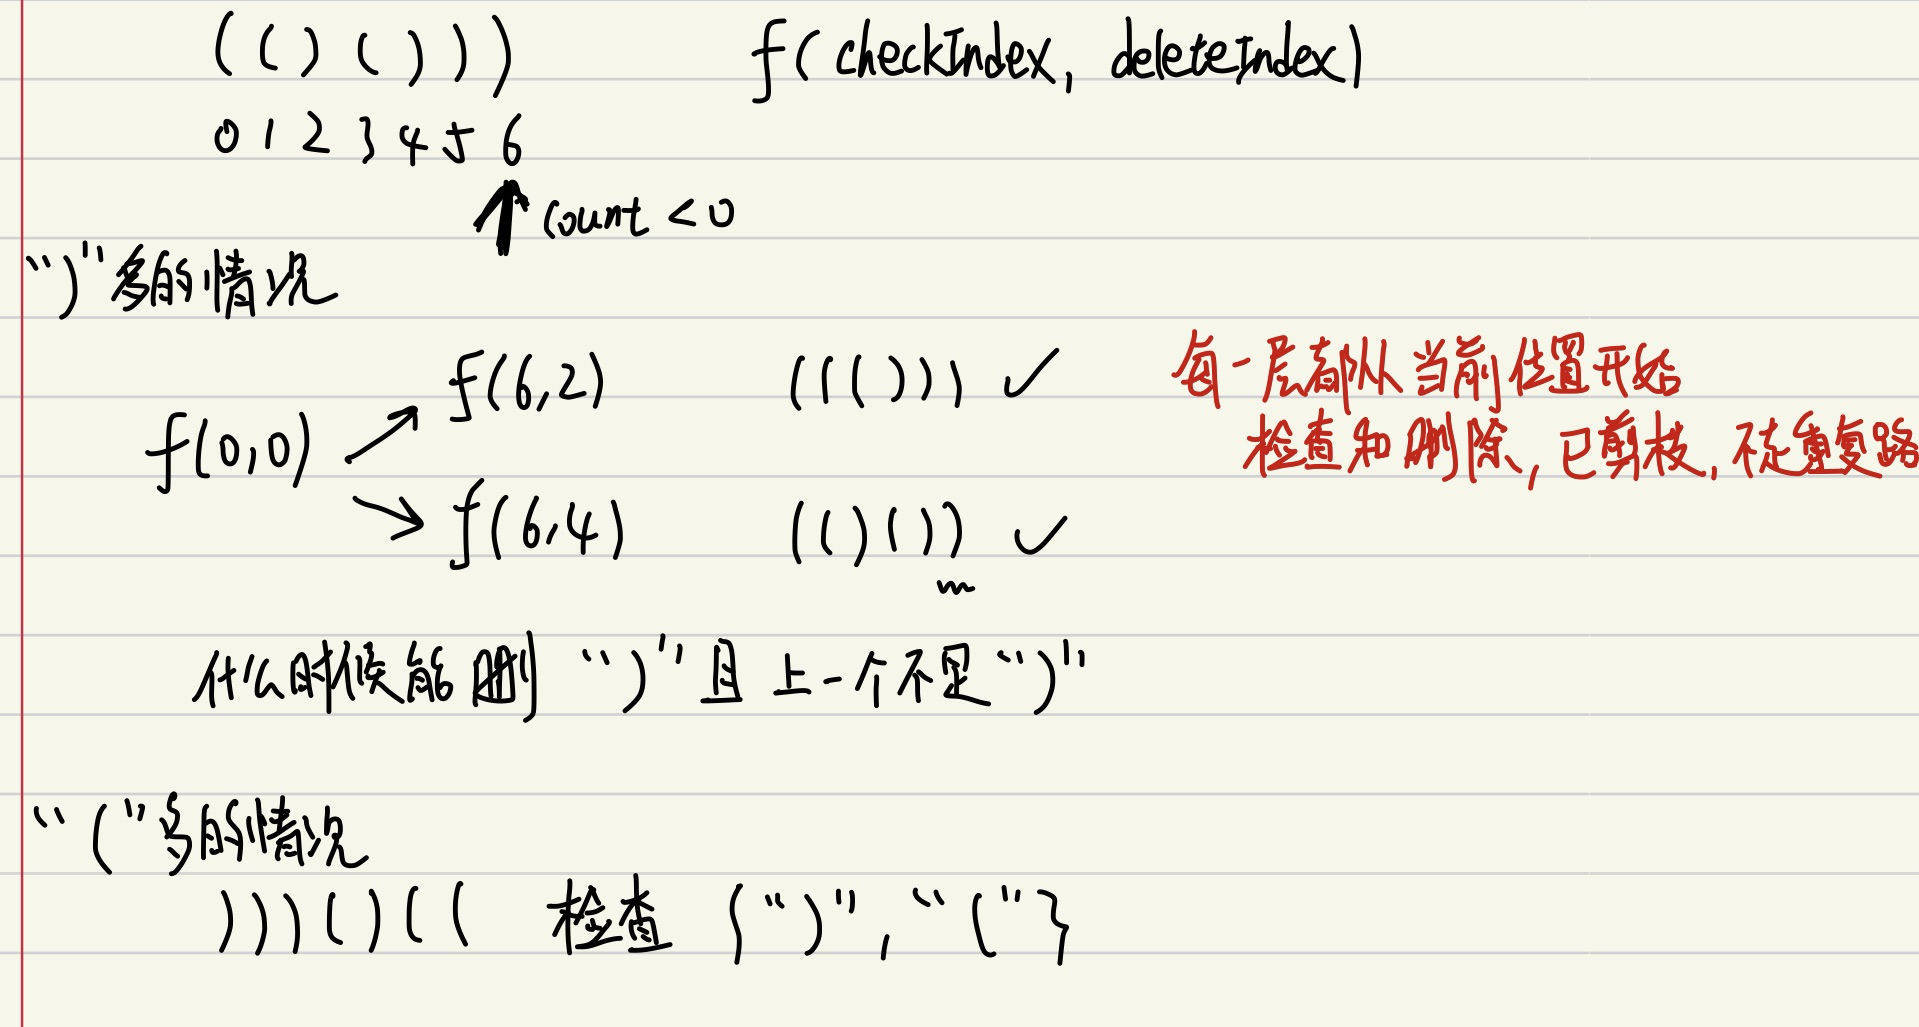 (()())) f(checkIndex, deleteIndex)
0 1 2 3 4 5 6
count < 0
“)”多的情况
f(6,2) ((())) ✓ 每一层都从当前位置开始
f(0,0) 检查和删除,已剪枝,不走重复路
f(6,4) (()()) ✓
什么时候能删 “)”且上一个不是“)”
“(”多的情况
)))()(( 检查 {“)”, “(”}